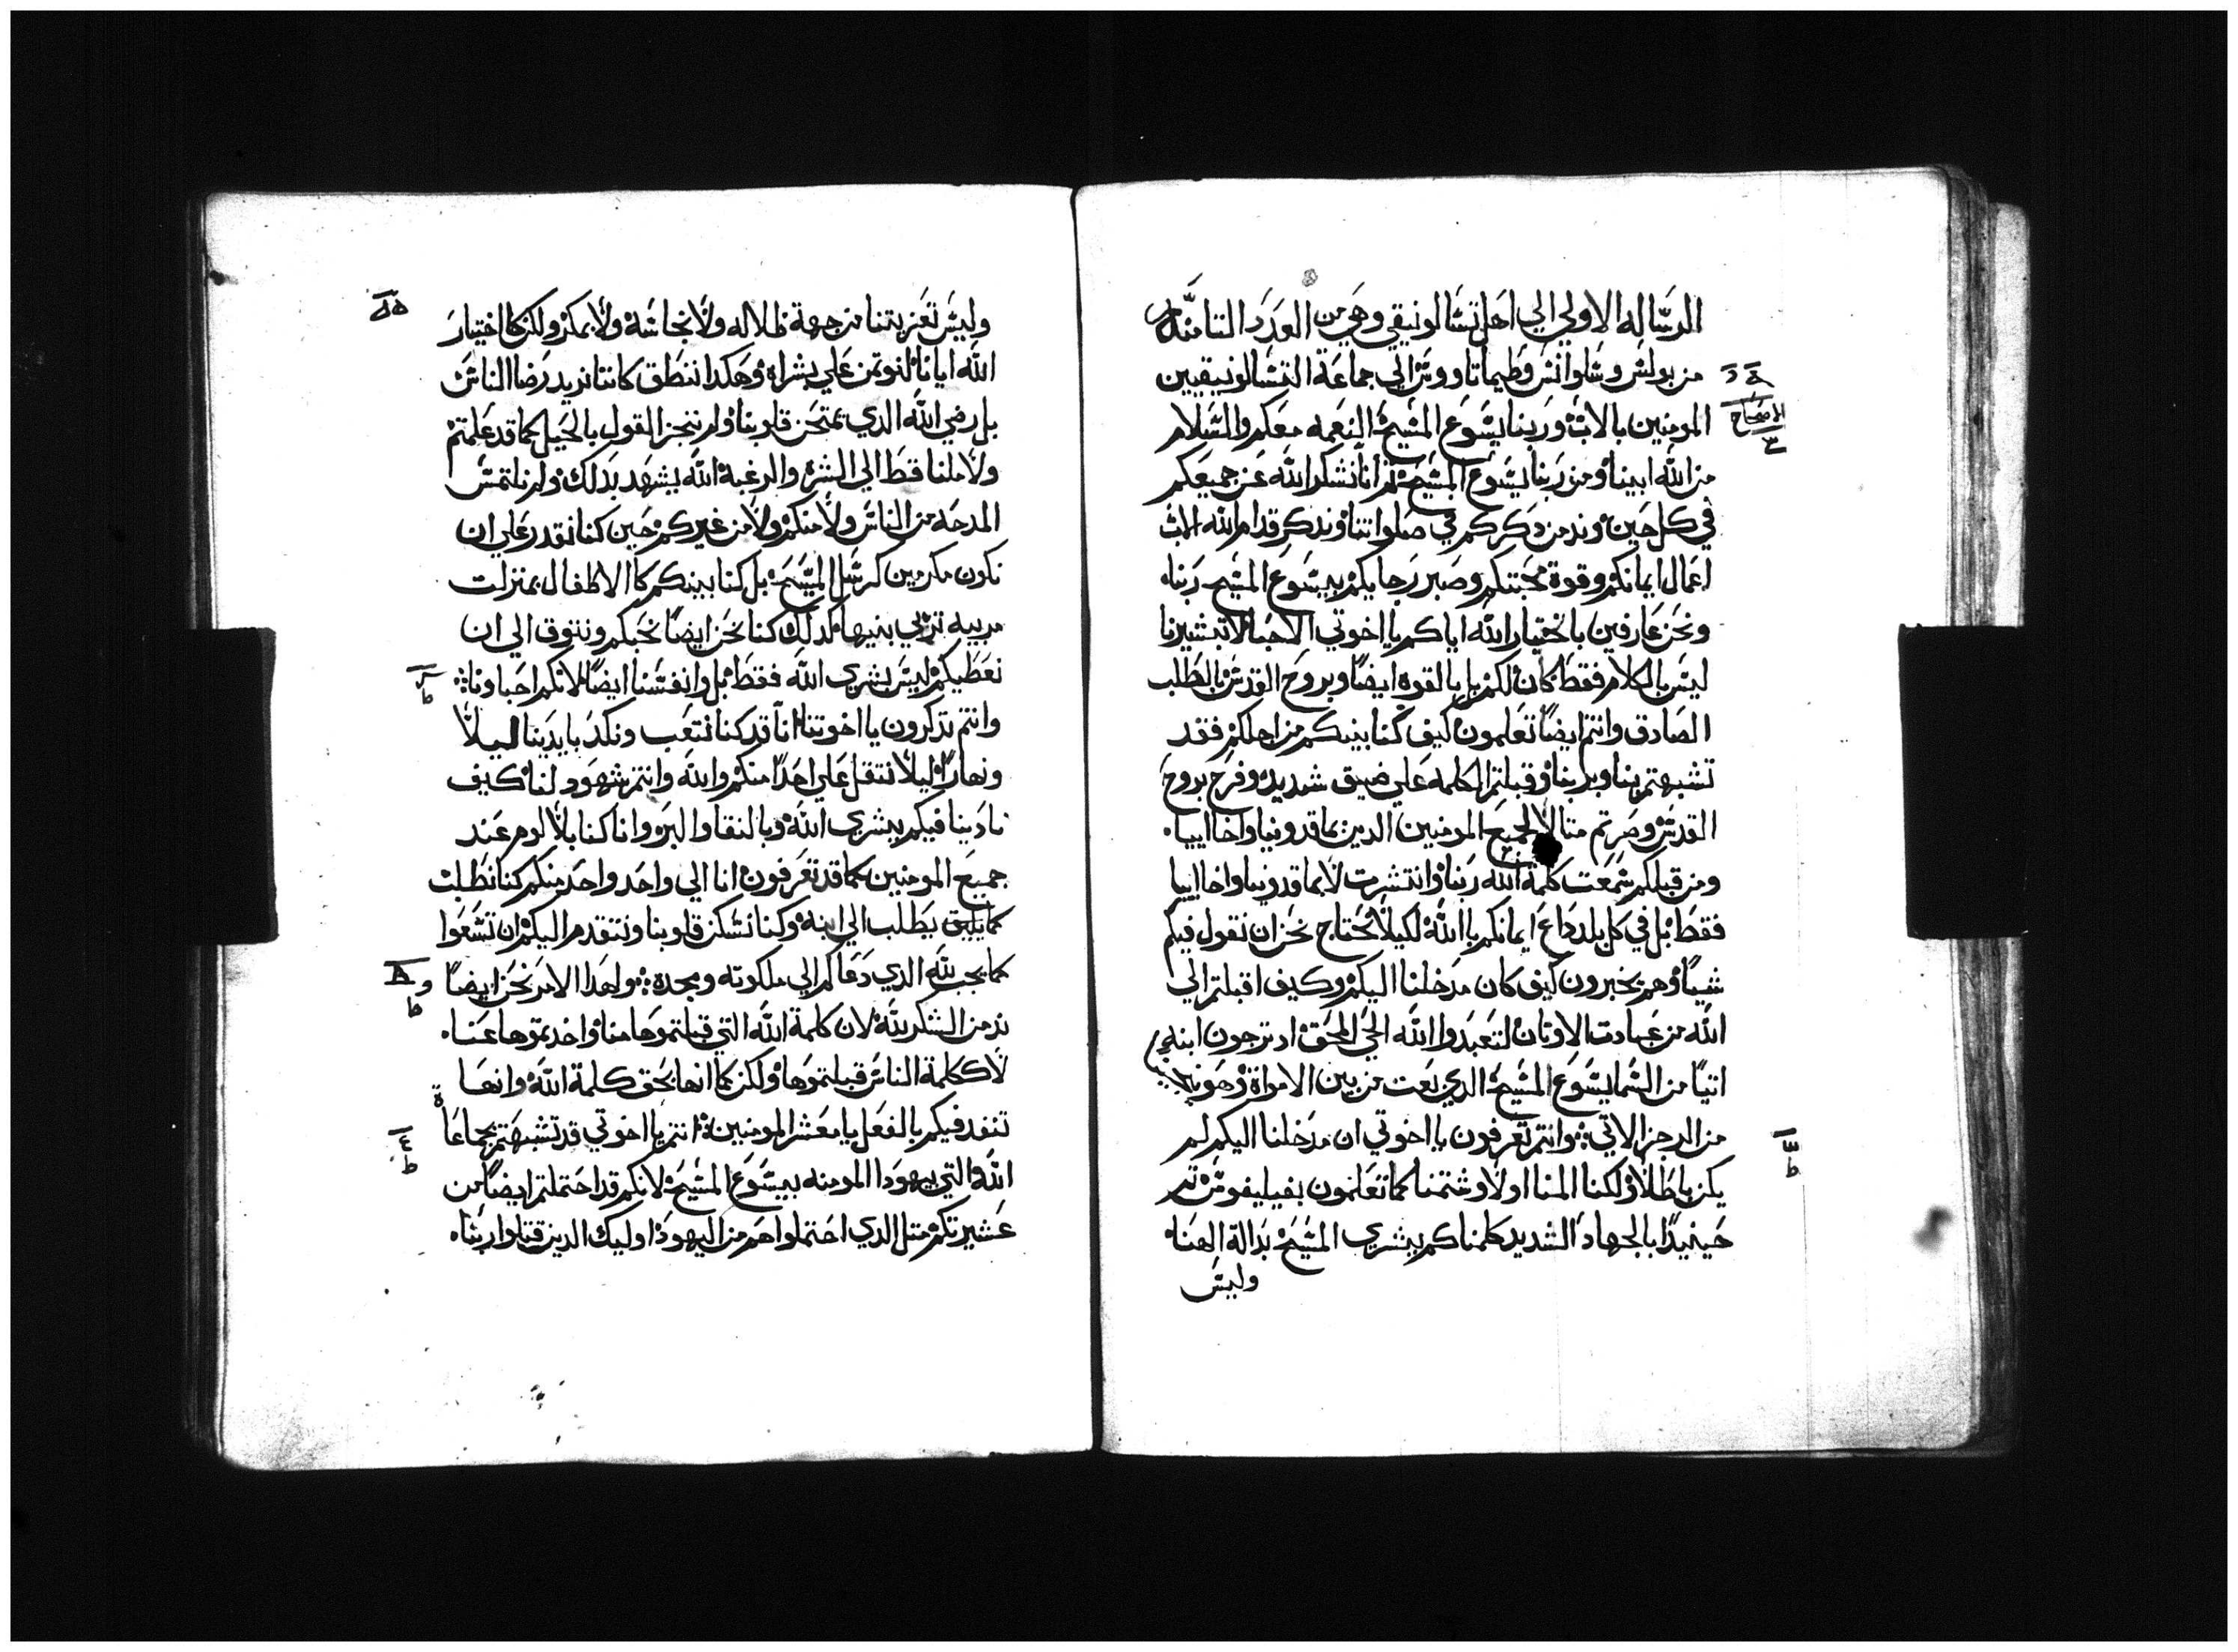 الرساله الاولي الي اهل تسالونيقي وهي من العدد التامنه
من بولس وسلوانس وطيماتاووس الي جماعة التسالونيقيين
المومنين بالاب وربنا يسوع المسيح النعمه معكم والسلام
من الله ابينا ومن ربنا يسوع المسيح ثم انا نشكر الله عن جميعكم
في كل حين وندمن دكركم في صلواتنا وندكر قدام الله الاب
اعمال ايمانكم وقوة محبتكم وصبر رجايكم بيسوع المسيح ربنا
ونحن عارفين باختيار الله اياكم يا اخوتي الاحبا لان تبشيرنا
ليس بالكلام فقط كان لكم بل بالقوه ايضا وبروح القدس بالطلب
الصادق وانتم ايضا تعلمون كيف كنا بينكم من اجلكم فقد
تشبهتم بنا وبربنا وقبلتم الكلمه علي ضيق شديد وفرح بروح
القدس وصرتم متالا لجميع المومنين الدين بماقدونيا واخاييا
ومن قبلكم سمعت كلمة الله ربنا وانتشرت لا بماقدونيا واخاييا
فقط بل في كل بلد داع ايمانكم بالله لكيلا نحتاج نحن ان نقول فيكم
شييا وهم يخبرون كيف كان مدخلنا اليكم وكيف اقبلتم الي
الله من عبادت الاوتان لتعبدوا الله الحي المحق اد ترجون ابنه
اتيا من السما يسوع المسيح الدي بعت من بين الامواة وهو
من الرجز الاتي وانتم تعرفون يا اخوتي ان مدخلنا اليكم لم
يكن باطلا ولكنا المنا اولا وشتمنا كما تعلمون بفيليفوس تم
حينيدا بالجهاد الشديد كلمناكم ببشري المسيح بدالة الهنا
وليس
الاصحاح
وليس تعزيتنا من جهة ظلاله ولا نجاسه ولا بمكر ولكن كا اختيار
الله ايانا لنوتمن علي بشراه وهكدا ننطق كاننا نريد رضا الناس
بل رضي الله الدي يمتحن قلوبنا ولم ننجز القول بالحيل كما قد علمتم
ولا ملنا قط الي الشره والرغبه الله يشهد بدلك ولم نلتمس
المدحه من الناس ولا منكم ولا من غيركم حين كنا نقدر علي ان
نكون مكرمين كرسل المسيح بل كنا بينكم كا الاطفال بمنزلت
مربيه تربي بنيها كدلك كنا نحن ايضا نحبكم ونتوق الي ان
نعطيكم ليس بشري الله فقط بل وانفسنا ايضا لانكم احباونا
وانتم تدكرون يا اخوتنا انا قد كنا نتعب ونكد بايدينا ليلا
ونهارا ليلا نتقل علي احدا منكم والله وانتم شهود لنا كيف
نادينا فيكم ببشري الله وبالنقا والبر وانا كنا بلا لوم عند
جميع المومنين كما قد تعرفون انا الي واحد واحد منكم كنا نطلب
كما يليق بطلب الي ابنه وكنا نسكن قلوبنا ونتقدم اليكم ان تسعوا
كما يجب لله الدي دعاكم الي ملكوته ومجده ولهدا الامر نحن ايضا
ندمن الشكر لله لان كلمة الله التي قبلتموها منا واخدتموها عنا
لا ككلمة الناس قبلتموها ولكن كما انها بحق كلمة الله وانها
تنفد فيكم بالفعل يا معشر المومنين انتم يا اخوتي قد تشبهتم بجماعاة
الله التي بيهودا المومنه بيسوع المسيح لانكم قد احتملتم ايضا من
عشيرتكم متل الدي احتملوا هم من اليهود اوليك الدين قتلوا ربنا